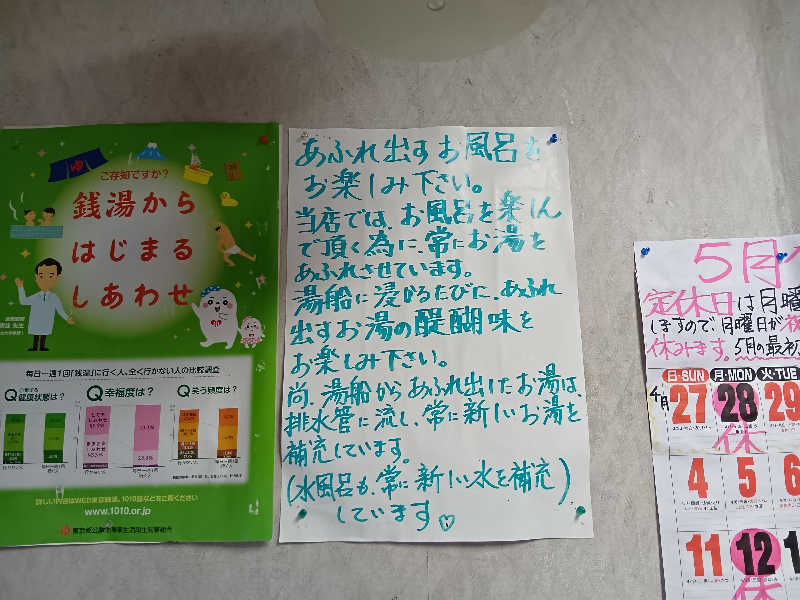 ゆ
ご存知ですか？
銭湯から
はじまる
しあわせ
毎日～週1回「銭湯」に行く人、全く行かない人の比較調査
Q健康状態は？
Q幸福度は？
Q笑う頻度は？
詳しい内容はWEB東京銭湯、1010誌などをご覧ください
www.1010.or.jp
東京都公衆浴場業生活衛生同業組合
あふれ出すお風呂を
お楽しみ下さい。
当店では、お風呂を楽しん
で頂く為に、常にお湯を
あふれさせています。
湯船に浸かるたびに、あふれ
出すお湯の醍醐味を
お楽しみ下さい。
尚、湯船からあふれ出したお湯は、
排水管に流し、常に新しいお湯を
補充しています。
(水風呂も、常に新しい水を補充)
しています♡
5月
定休日は月曜
しますので月曜日が祝
休みます。5月の最初
日・SUN 月・MON 火・TUE
4月 27 28 29
休
4 5 6
11 12 1
休